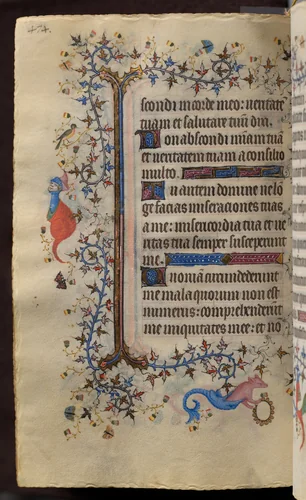 scondi in corde meo: ueritatē
tuam et salutare tuū dixi.
Non abscondi mi͞am tuā
et ueritatem tuam a consilio
multo.
Tu autem domine ne lō
ge facias miseraciones tuas
a me: misericordia tua et ue
ritas tua semper susceperunt
me.
Quoniā circumdederunt
me mala quorum non est
numerus: comprehenderunt
me iniquitates mee: et nō